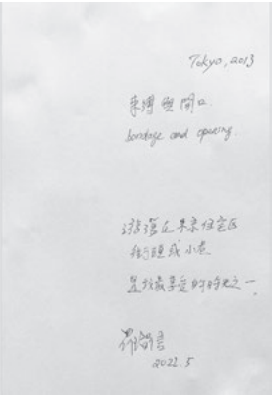 Tokyo, 2013
束縛與開口.
bondage and opening.
游蕩在東京住宅区
街頭或小巷
是我最享受的時光之一.
2022.5